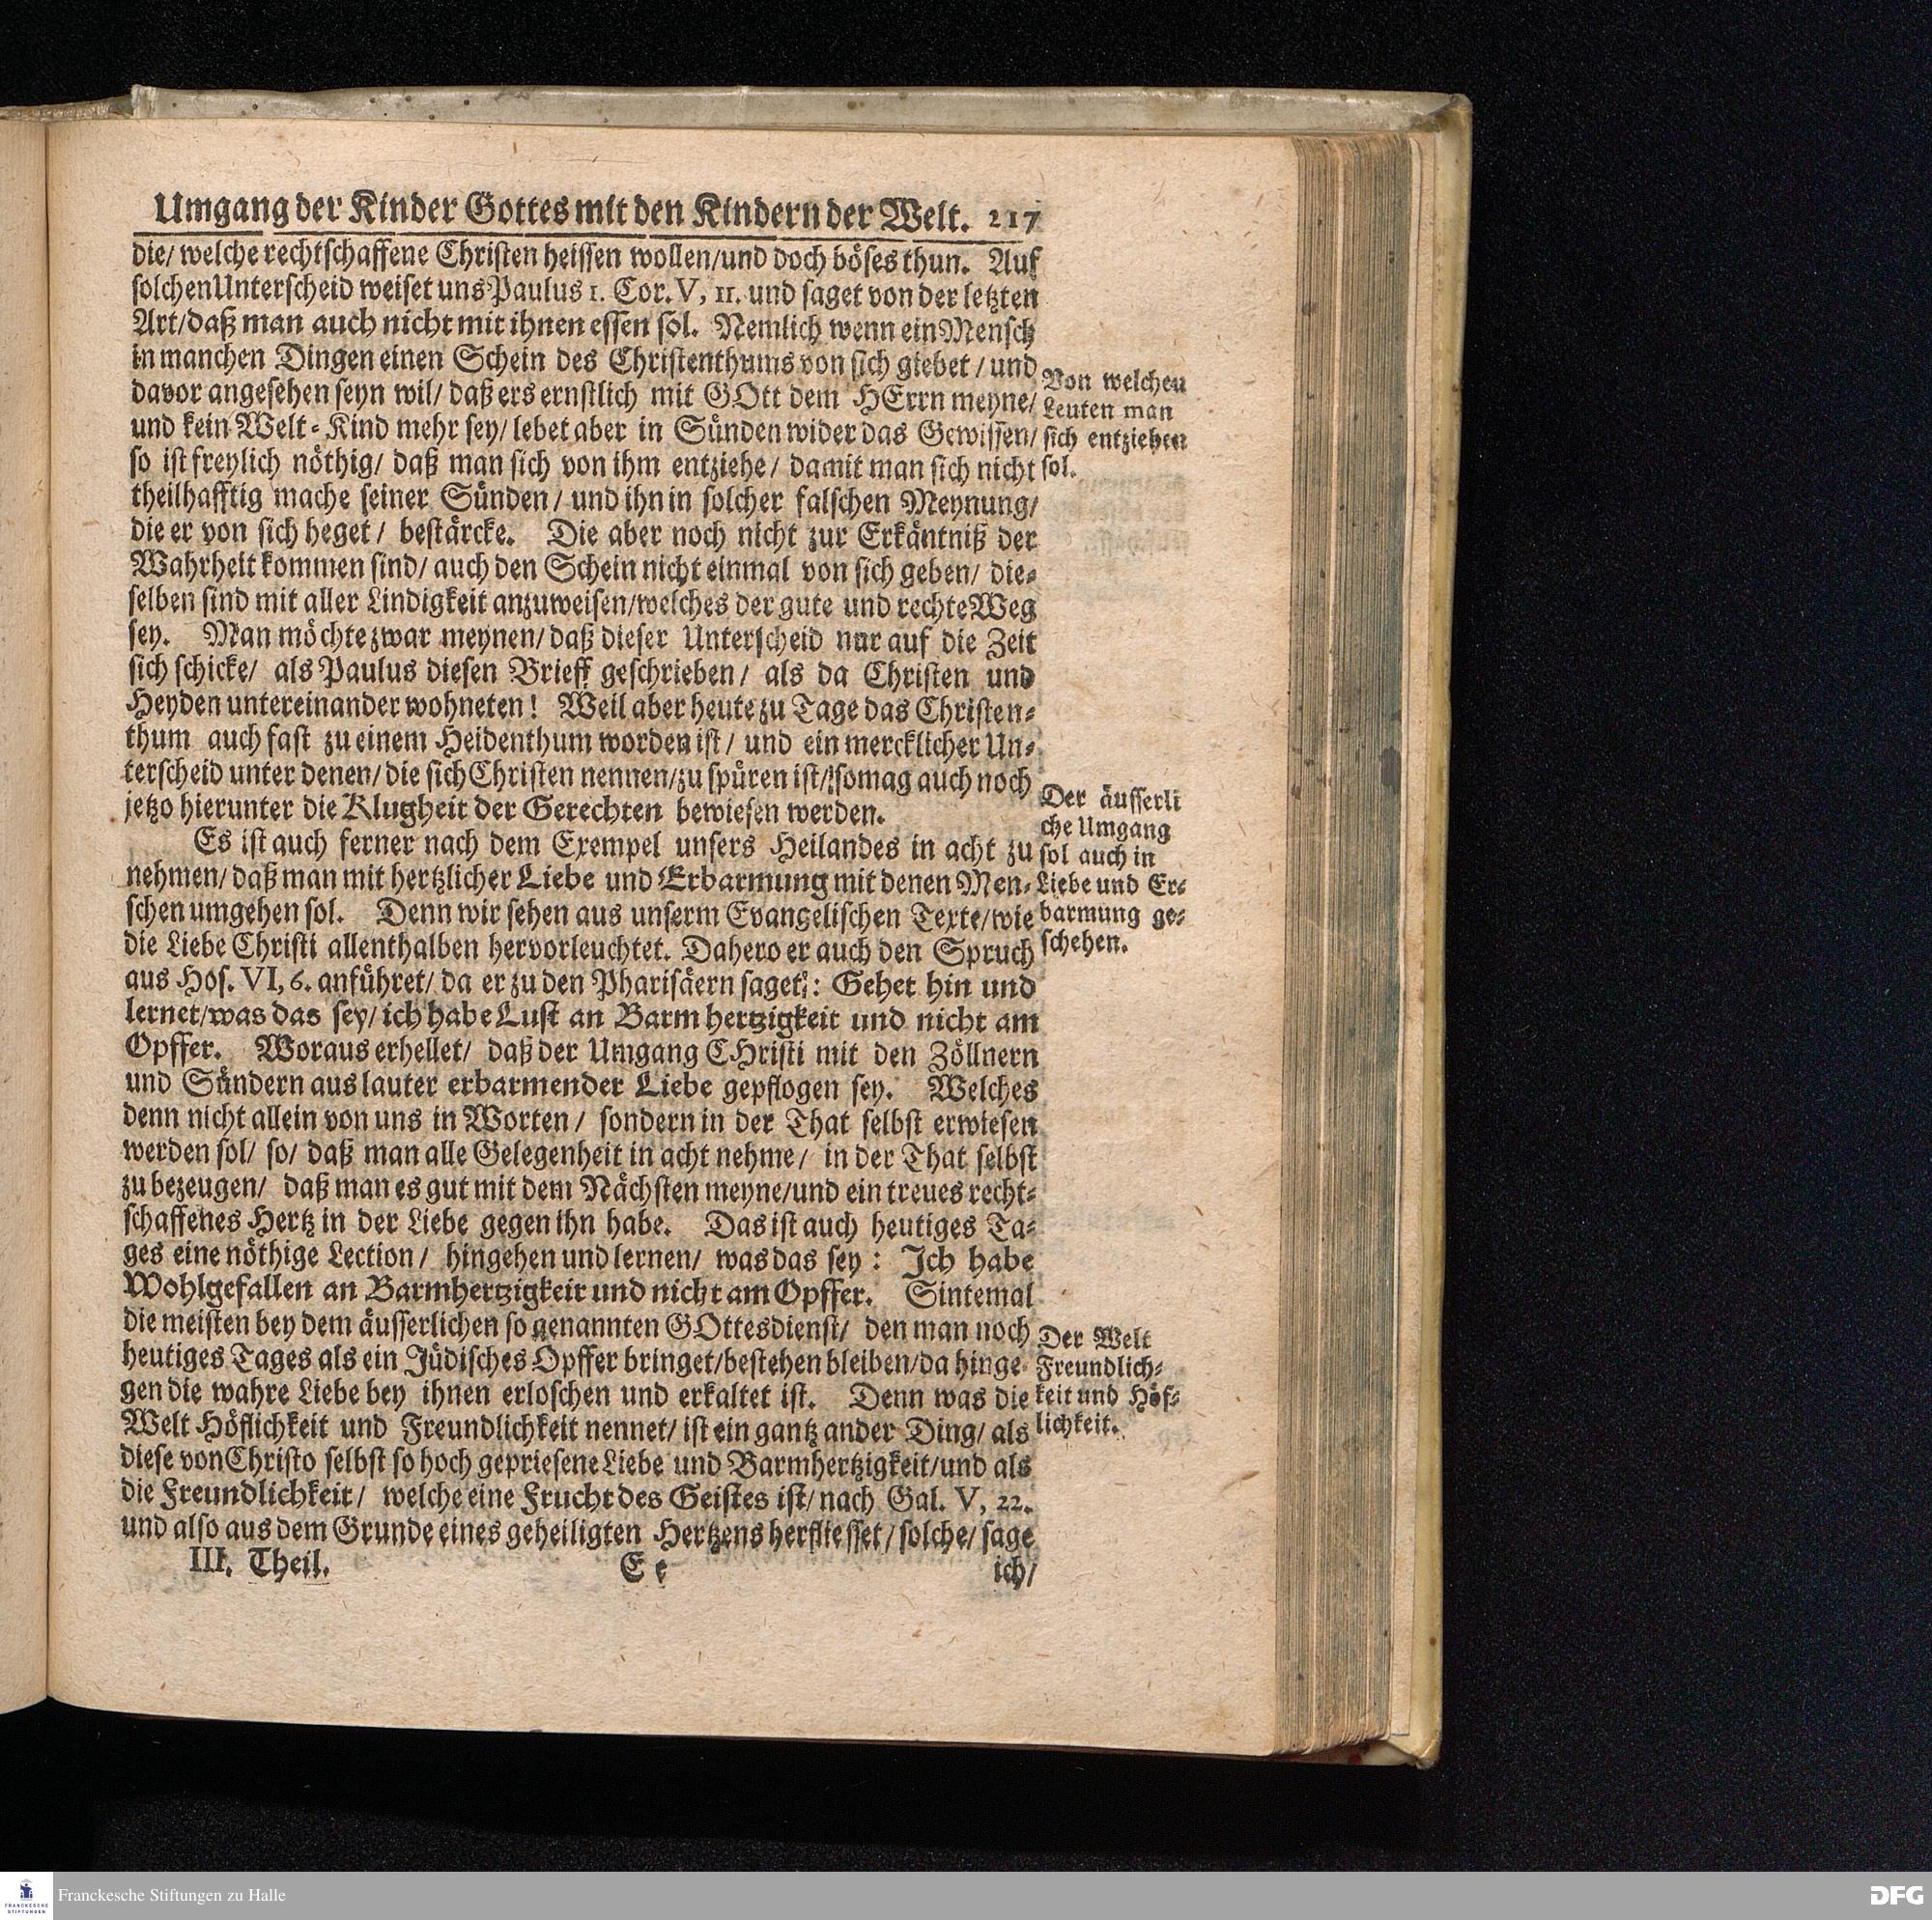 Umgang der Kinder Gottes mit den Kindern der Welt. 217
die/ welche rechtschaffene Christen heissen wollen/und doch böses thun. Auf
solchen Unterscheid weiset uns Paulus 1. Cor. V, 11. und saget von der letzten
Art/daß man auch nicht mit ihnen essen sol. Nemlich wenn ein Mensch
in manchen Dingen einen Schein des Christenthums von sich giebet / und
davor angesehen seyn wil/ daß ers ernstlich mit GOtt dem HErrn meyne/
und kein Welt-Kind mehr sey/ lebet aber in Sünden wider das Gewissen/
so ist freylich nöthig/ daß man sich von ihm entziehe / damit man sich nicht
theilhafftig mache seiner Sünden / und ihn in solcher falschen Meynung/
die er von sich heget / bestärcke. Die aber noch nicht zur Erkäntniß der
Wahrheit kommen sind/ auch den Schein nicht einmal von sich geben/ die-
selben sind mit aller Lindigkeit anzuweisen/welches der gute und rechte Weg
sey. Man möchte zwar meynen/ daß dieser Unterscheid nur auf die Zeit
sich schicke/ als Paulus diesen Brieff geschrieben/ als da Christen und
Heyden untereinander wohneten! Weil aber heute zu Tage das Christen-
thum auch fast zu einem Heidenthum worden ist / und ein mercklicher Un-
terscheid unter denen/ die sich Christen nennen/zu spüren ist/ so mag auch noch
jetzo hierunter die Klugheit der Gerechten bewiesen werden.
Es ist auch ferner nach dem Exempel unsers Heilandes in acht zu
nehmen/ daß man mit hertzlicher Liebe und Erbarmung mit denen Men-
schen umgehen sol. Denn wir sehen aus unserm Evangelischen Texte/wie
die Liebe Christi allenthalben hervorleuchtet. Dahero er auch den Spruch
aus Hos. VI, 6. anführet/ da er zu den Pharisäern saget: Gehet hin und
lernet/was das sey/ ich habe Lust an Barmhertzigkeit und nicht am
Opffer. Woraus erhellet/ daß der Umgang CHristi mit den Zöllnern
und Sündern aus lauter erbarmender Liebe gepflogen sey. Welches
denn nicht allein von uns in Worten / sondern in der That selbst erwiesen
werden sol/ so/ daß man alle Gelegenheit in acht nehme/ in der That selbst
zu bezeugen/ daß man es gut mit dem Nächsten meyne/und ein treues recht-
schaffenes Hertz in der Liebe gegen ihn habe. Das ist auch heutiges Ta-
ges eine nöthige Lection / hingehen und lernen/ was das sey : Ich habe
Wohlgefallen an Barmhertzigkeit und nicht am Opffer. Sintemal
die meisten bey dem äusserlichen so genannten GOttesdienst/ den man noch
heutiges Tages als ein Jüdisches Opffer bringet/bestehen bleiben/da hinge-
gen die wahre Liebe bey ihnen erloschen und erkaltet ist. Denn was die
Welt Höflichkeit und Freundlichkeit nennet/ ist ein gantz ander Ding/ als
diese von Christo selbst so hoch gepriesene Liebe und Barmhertzigkeit/und als
die Freundlichkeit/ welche eine Frucht des Geistes ist/ nach Gal. V, 22.
und also aus dem Grunde eines geheiligten Hertzens herfliesset / solche/ sage
III. Theil. E e ich/
Von welchen
Leuten man
sich entziehen
sol.
Der äusserli
che Umgang
sol auch in
Liebe und Er-
barmung ge-
schehen.
Der Welt
Freundlich-
keit und Höf-
lichkeit.
FRANCKESCHE
STIFTUNGEN
Franckesche Stiftungen zu Halle
DFG